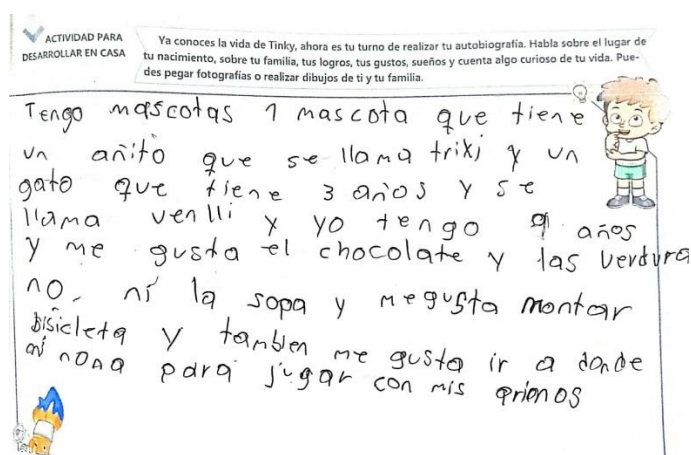 ACTIVIDAD PARA
DESARROLLAR EN CASA
Ya conoces la vida de Tinky, ahora es tu turno de realizar tu autobiografía. Habla sobre el lugar de
tu nacimiento, sobre tu familia, tus logros, tus gustos, sueños y cuenta algo curioso de tu vida. Pue-
des pegar fotografías o realizar dibujos de ti y tu familia.
Tengo mascotas 1 mascota que tiene
un añito que se llama trixi y un
gato que tiene 3 años y se
llama venlli y yo tengo 9 años
y me gusta el chocolate y las verdura
no, ni la sopa y me gusta montar
bisicleta y tanbien me gusta ir a donde
mi nona para jugar con mis primos